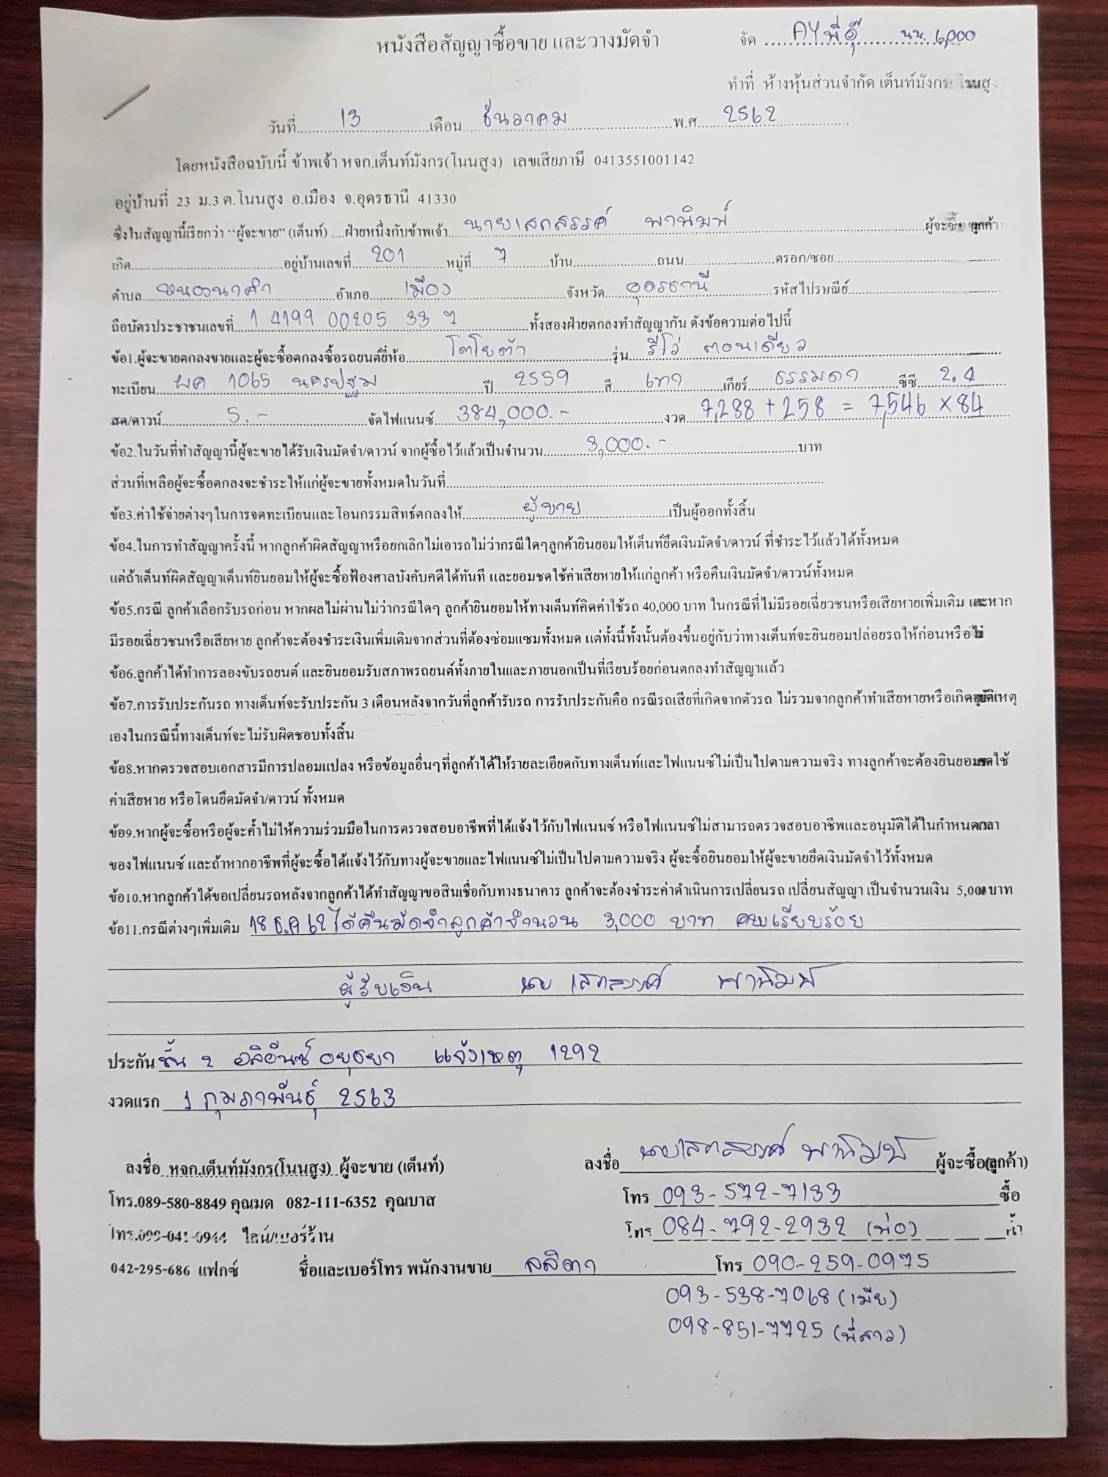 หนังสือสัญญาซื้อขาย และวางมัดจำ
จัด AY พี่อุ๊ นน. 6,000
ทำที่ ห้างหุ้นส่วนจำกัด เต็นท์มังกร โนนสู
วันที่ 13 เดือน ธันวาคม พ.ศ 2562
โดยหนังสือฉบับนี้ ข้าพเจ้า หจก.เต็นท์มังกร(โนนสูง) เลขเสียภาษี 0413551001142
อยู่บ้านที่ 23 ม.3 ต.โนนสูง อ.เมือง จ.อุดรธานี 41330
ซึ่งในสัญญานี้เรียกว่า "ผู้จะขาย" (เต็นท์) ....ฝ่ายหนึ่งกับข้าพเจ้า นายเสกสรรค์ พานิมพ์ ผู้จะซื้อ ลูกค้า
เกิด อยู่บ้านเลขที่ 201 หมู่ที่ 7 บ้าน ถนน ตรอก/ซอย
ตำบล หนองนาคำ อำเภอ เมือง จังหวัด อุดรธานี รหัสไปรษณีย์
ถือบัตรประชาชนเลขที่ 1 4199 00205 33 7 ทั้งสองฝ่ายตกลงทำสัญญากัน ดังข้อความต่อไปนี้
ข้อ1.ผู้จะขายตกลงขายและผู้จะซื้อตกลงซื้อรถยนต์ยี่ห้อ โตโยต้า รุ่น รีโว่ ตอนเดียว
ทะเบียน ผค 1065 นครปฐม ปี 2559 สี เทา เกียร์ ธรรมดา ซีซี 2.4
สด/ดาวน์ 5.- จัดไฟแนนซ์ 384,000.- งวด 7,288 + 258 = 7,546 × 84
ข้อ2.ในวันที่ทำสัญญานี้ผู้จะขายได้รับเงินมัดจำ/ดาวน์ จากผู้ซื้อไว้แล้วเป็นจำนวน 3,000.- บาท
ส่วนที่เหลือผู้จะซื้อตกลงจะชำระให้แก่ผู้จะขายทั้งหมดในวันที่
ข้อ3.ค่าใช้จ่ายต่างๆในการจดทะเบียนและโอนกรรมสิทธิ์ตกลงให้ ผู้ขาย เป็นผู้ออกทั้งสิ้น
ข้อ4.ในการทำสัญญาครั้งนี้ หากลูกค้าผิดสัญญาหรือยกเลิกไม่เอารถไม่ว่ากรณีใดๆลูกค้ายินยอมให้เต็นท์ยึดเงินมัดจำ/ดาวน์ ที่ชำระไว้แล้วได้ทั้งหมด
แต่ถ้าเต็นท์ผิดสัญญาเต็นท์ยินยอมให้ผู้จะซื้อฟ้องศาลบังคับคดีได้ทันที และยอมชดใช้ค่าเสียหายให้แก่ลูกค้า หรือคืนเงินมัดจำ/ดาวน์ทั้งหมด
ข้อ5.กรณี ลูกค้าเลือกรับรถก่อน หากผลไม่ผ่านไม่ว่ากรณีใดๆ ลูกค้ายินยอมให้ทางเต็นท์คิดค่าใช้รถ 40,000 บาท ในกรณีที่ไม่มีรอยเฉี่ยวชนหรือเสียหายเพิ่มเติม และหาก
มีรอยเฉี่ยวชนหรือเสียหาย ลูกค้าจะต้องชำระเงินเพิ่มเติมจากส่วนที่ต้องซ่อมแซมทั้งหมด แต่ทั้งนี้ทั้งนั้นต้องขึ้นอยู่กับว่าทางเต็นท์จะยินยอมปล่อยรถให้ก่อนหรือไม่
ข้อ6.ลูกค้าได้ทำการลองขับรถยนต์ และยินยอมรับสภาพรถยนต์ทั้งภายในและภายนอกเป็นที่เรียบร้อยก่อนตกลงทำสัญญาแล้ว
ข้อ7.การรับประกันรถ ทางเต็นท์จะรับประกัน 3 เดือนหลังจากวันที่ลูกค้ารับรถ การรับประกันคือ กรณีรถเสียที่เกิดจากตัวรถ ไม่รวมจากลูกค้าทำเสียหายหรือเกิดอุบัติเหตุ
เองในกรณีนี้ทางเต็นท์จะไม่รับผิดชอบทั้งสิ้น
ข้อ8.หากตรวจสอบเอกสารมีการปลอมแปลง หรือข้อมูลอื่นๆที่ลูกค้าได้ให้รายละเอียดกับทางเต็นท์และไฟแนนซ์ไม่เป็นไปตามความจริง ทางลูกค้าจะต้องยินยอมชดใช้
ค่าเสียหาย หรือโดนยึดมัดจำ/ดาวน์ ทั้งหมด
ข้อ9.หากผู้จะซื้อหรือผู้จะค้ำไม่ให้ความร่วมมือในการตรวจสอบอาชีพที่ได้แจ้งไว้กับไฟแนนซ์ หรือไฟแนนซ์ไม่สามารถตรวจสอบอาชีพและอนุมัติได้ในกำหนดเวลา
ของไฟแนนซ์ และถ้าหากอาชีพที่ผู้จะซื้อได้แจ้งไว้กับทางผู้จะขายและไฟแนนซ์ไม่เป็นไปตามความจริง ผู้จะซื้อยินยอมให้ผู้จะขายยึดเงินมัดจำไว้ทั้งหมด
ข้อ10.หากลูกค้าได้ขอเปลี่ยนรถหลังจากลูกค้าได้ทำสัญญาขอสินเชื่อกับทางธนาคาร ลูกค้าจะต้องชำระค่าดำเนินการเปลี่ยนรถ เปลี่ยนสัญญา เป็นจำนวนเงิน 5,000 บาท
ข้อ11.กรณีต่างๆเพิ่มเติม 18 ธ.ค 62 ได้คืนมัดจำลูกค้าจำนวน 3,000 บาท ครบเรียบร้อย
ผู้รับเงิน นาย เสกสรรค์ พานิมพ์
ประกัน ชั้น 2 อลิอันซ์ อยุธยา แจ้งเหตุ 1292
งวดแรก 1 กุมภาพันธุ์ 2563
ลงชื่อ หจก.เต็นท์มังกร(โนนสูง) ผู้จะขาย (เต็นท์) ลงชื่อ นายเสกสรรค์ พานิมพ์ ผู้จะซื้อ(ลูกค้า)
โทร.089-580-8849 คุณมด 082-111-6352 คุณบาส โทร 093-572-7133 ซื้อ
โทร.099-041-0944 ไลน์/เบอร์ร้าน โทร 084-792-2932 (พ่อ) ค้ำ
042-295-686 แฟกซ์ ชื่อและเบอร์โทร พนักงานขาย ลลิตา โทร 090-259-0975
093-538-7068 (เมีย)
098-851-7725 (พี่สาว)